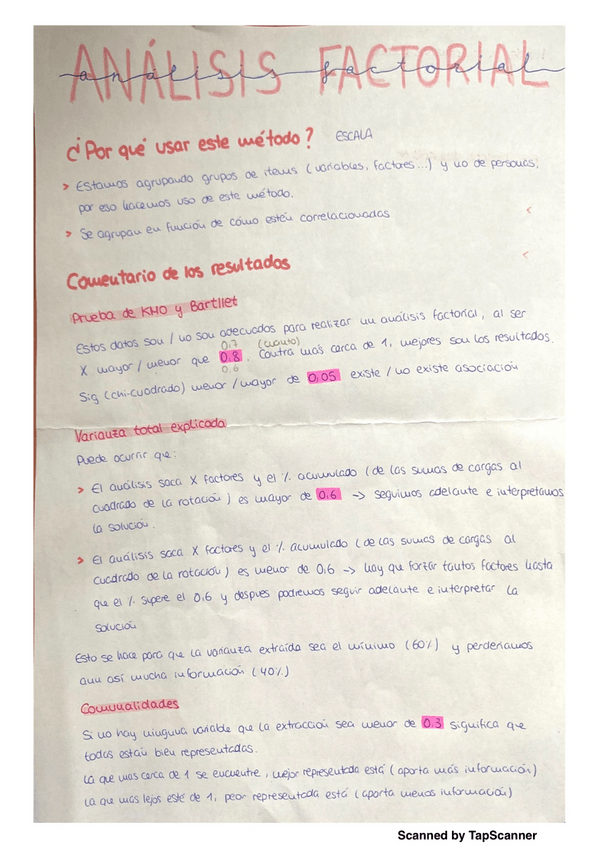 ANÁLISIS FACTORIAL
análisis factorial
¿Por qué usar este método? ESCALA
> Estamos agrupando grupos de items (variables, factores...) y no de personas,
por eso hacemos uso de este método.
> Se agrupan en función de cómo estén correlacionadas
Comentario de los resultados
Prueba de KMO y Bartllet
Estos datos son / no son adecuados para realizar un análisis factorial, al ser
0.7 (cuanto)
X mayor / menor que 0.8. Contra más cerca de 1, mejores son los resultados.
0.6
Sig (chi-cuadrado) menor / mayor de 0,05 existe / no existe asociación
Varianza total explicada
Puede ocurrir que:
> El análisis saca X factores y el % acumulado (de las sumas de cargas al
cuadrado de la rotación) es mayor de 0.6 -> seguimos adelante e interpretamos
la solución.
> El análisis saca X factores y el % acumulado (de las sumas de cargas al
cuadrado de la rotación) es menor de 0.6 -> hay que forzar tantos factores hasta
que el % supere el 0.6 y despues podremos seguir adelante e interpretar la
solución
Esto se hace para que la varianza extraída sea el mínimo (60%) y perderiamos
aun así mucha información (40%)
Comunalidades
Si no hay ninguna variable que la extracción sea menor de 0.3 significa que
todas están bien representadas.
La que mas cerca de 1 se encuentre, mejor representada está (aporta más información)
La que mas lejos esté de 1, peor representada está (aporta menos información)
Scanned by TapScanner